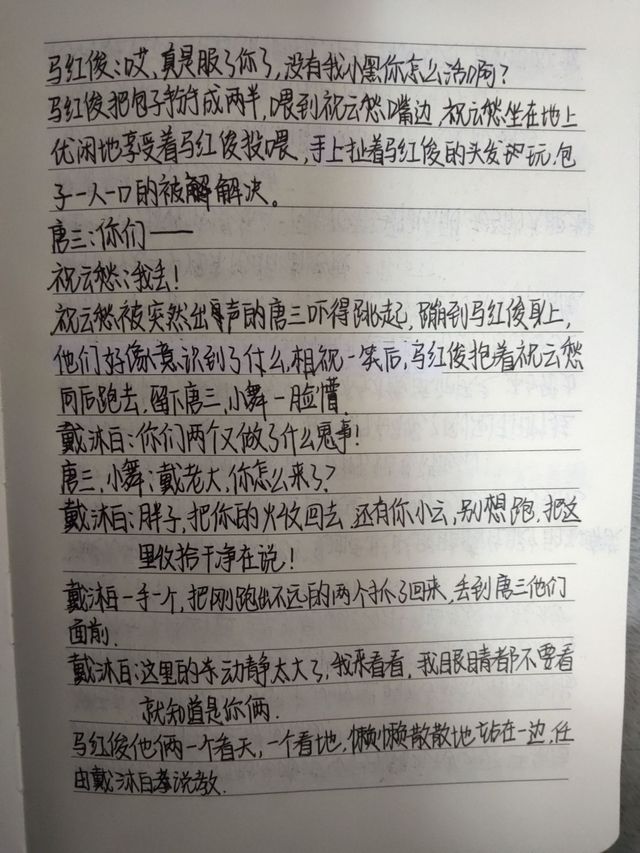 马红俊:哎,真是服了你了,没有我小黑你怎么活啊?
马红俊把包子掰成两半,喂到祝云愁嘴边,祝云愁坐在地上
优闲地享受着马红俊投喂,手上扯着马红俊的头发把玩,包
子一人一口的被解解决。
唐三:你们——
祝云愁:我去!
祝云愁被突然出声的唐三吓得跳起,蹦到马红俊身上,
他们好像意识到了什么,相视一笑后,马红俊抱着祝云愁
向后跑去,留下唐三,小舞一脸懵.
戴沐白:你们两个又做了什么鬼事!
唐三,小舞:戴老大,你怎么来了?
戴沐白:胖子,把你的火收回去,还有你小云,别想跑,把这
里收拾干净在说!
戴沐白一手一个,把刚跑出不远的两个抓了回来,丢到唐三他们
面前.
戴沐白:这里的动静太大了,我来看看,我眼睛都不要看
就知道是你俩.
马红俊他俩一个看天,一个看地,懒懒散散地站在一边,任
由戴沐白说教.